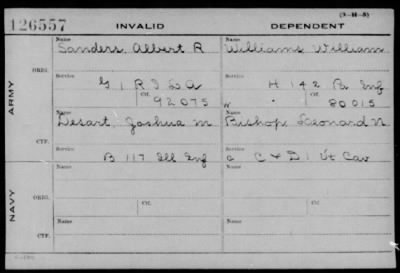 (3-H-5)
126557 INVALID DEPENDENT
Name Name
Sanders, Albert R Williams William
ARMY
ORIG. Service Service
G 1 R I L A H 142 Pa Inf
Ctf. Ctf.
92075 W 80015
Name Name
Desart, Joshua M Bishop Leonard N
CTF. Service Service
B 117 Ill Inf a C & D 1 Vt Cav
NAVY
Name Name
ORIG. Ctf. Ctf.
Name Name
CTF.